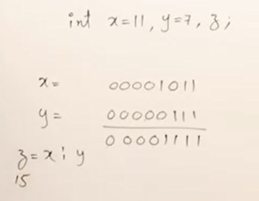 int x=11, y=7, z;
x= 00001011
y= 00000111
00001111
z = x ¦ y
15